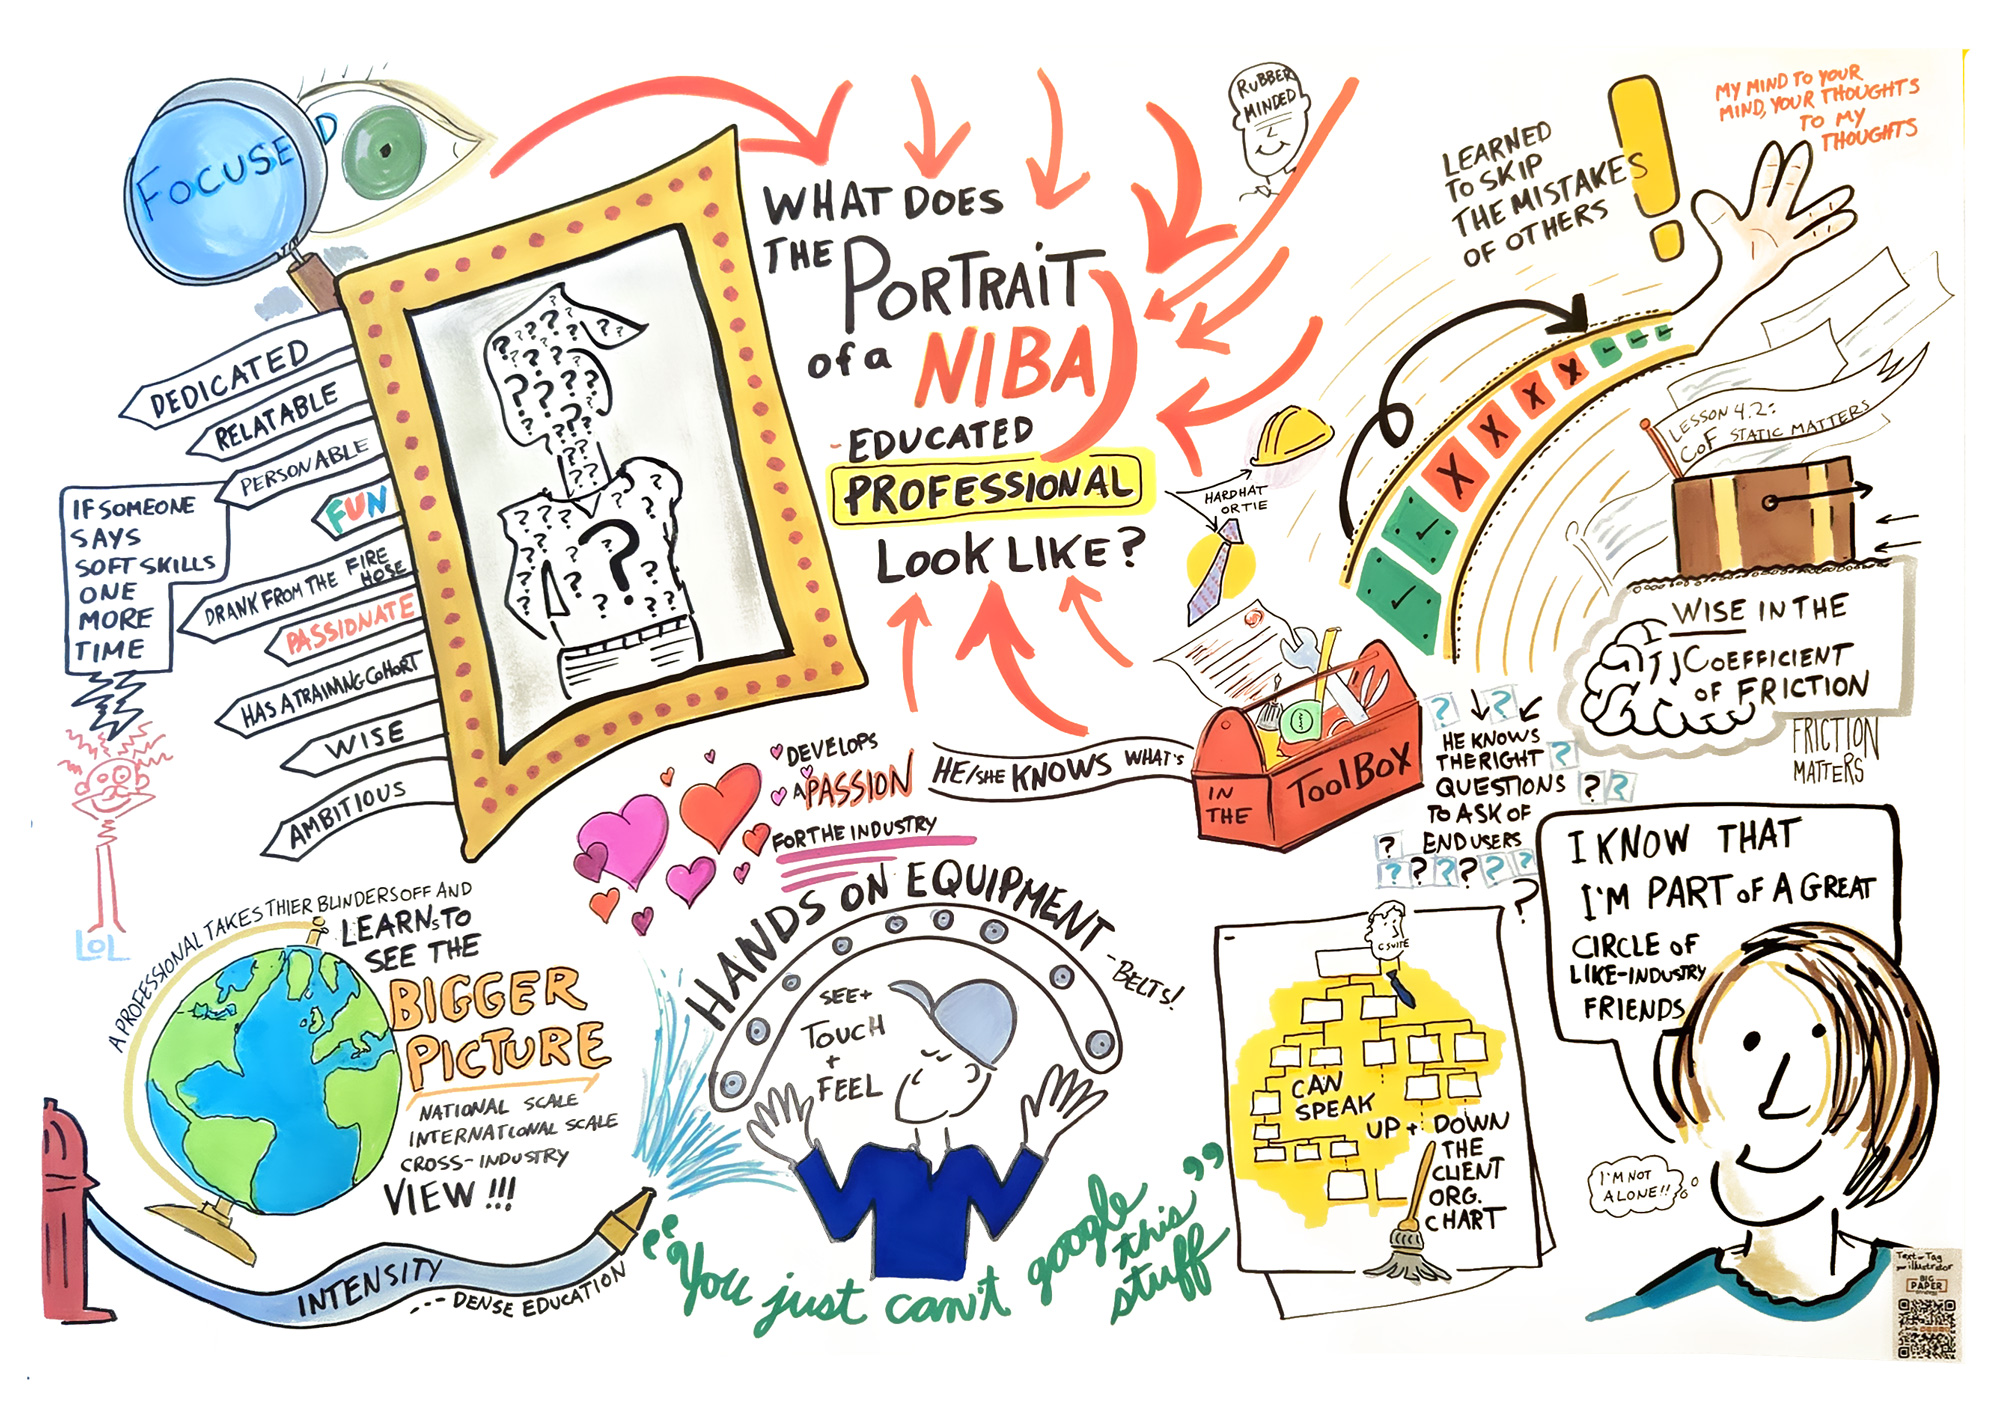 FOCUSED
DEDICATED
RELATABLE
PERSONABLE
FUN
DRANK FROM THE FIRE
HOSE
PASSIONATE
HAS A TRAINING COHORT
WISE
AMBITIOUS
IF SOMEONE
SAYS
SOFT SKILLS
ONE
MORE
TIME
LOL
WHAT DOES
THE PORTRAIT
of a NIBA
-EDUCATED
PROFESSIONAL
LOOK LIKE?
RUBBER
MINDED
HARD HAT
OR TIE
LEARNED
TO SKIP
THE MISTAKES
OF OTHERS
MY MIND TO YOUR
MIND, YOUR THOUGHTS
TO MY
THOUGHTS
LESSON 4.2:
COF STATIC MATTERS
WISE IN THE
COEFFICIENT
OF FRICTION
FRICTION
MATTERS
DEVELOPS
A PASSION
FOR THE INDUSTRY
HE/SHE KNOWS WHAT'S
IN
THE
TOOLBOX
HE KNOWS
THE RIGHT
QUESTIONS
TO ASK OF
END USERS
A PROFESSIONAL TAKES THIER BLINDERS OFF AND
LEARNS TO
SEE THE
BIGGER
PICTURE
NATIONAL SCALE
INTERNATIONAL SCALE
CROSS-INDUSTRY
VIEW!!!
INTENSITY
---DENSE EDUCATION
HANDS ON EQUIPMENT
-BELTS!
SEE+
TOUCH
+
FEEL
"You just can't google
this
stuff"
C SUITE
CAN
SPEAK
UP + DOWN
THE
CLIENT
ORG.
CHART
I KNOW THAT
I'M PART OF A GREAT
CIRCLE OF
LIKE-INDUSTRY
FRIENDS
I'M NOT
ALONE!!
Text-Tag
illustrator
BIG
PAPER